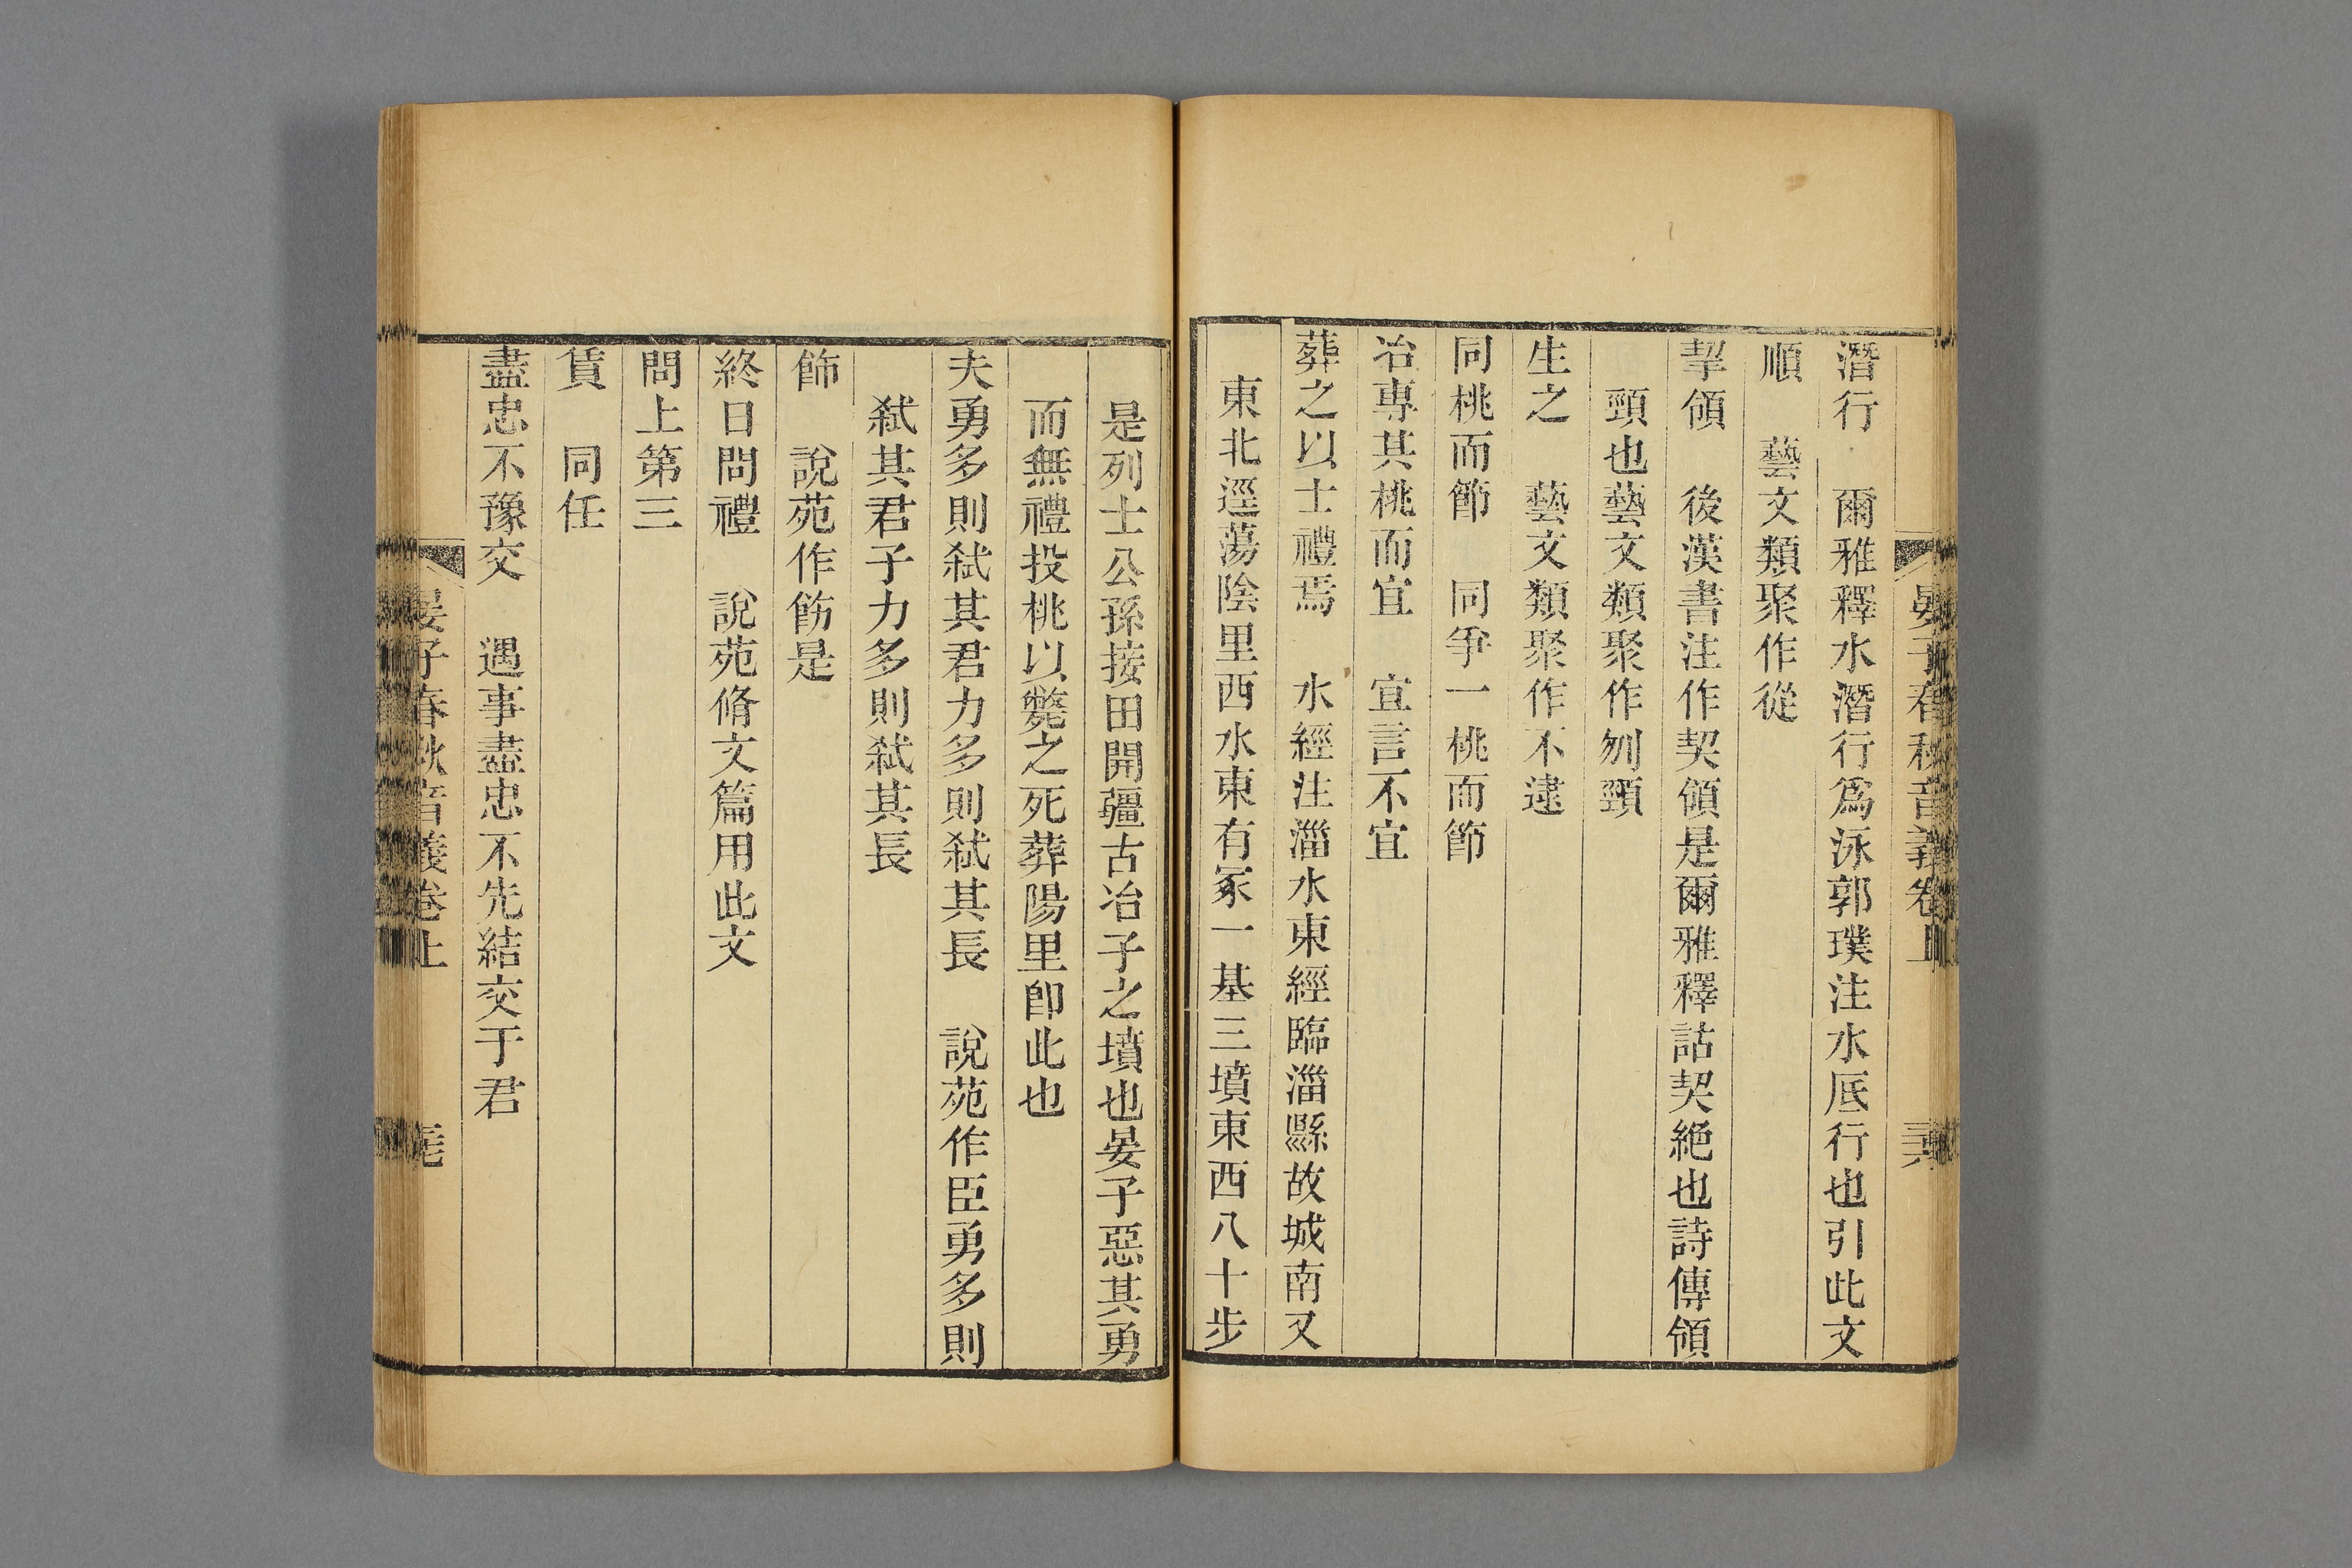 晏子春秋音義卷上
潛行　爾雅釋水潛行爲泳郭璞注水厎行也引此文
順　藝文類聚作從
挈領　後漢書注作契領是爾雅釋詁契絶也詩傳領
頸也藝文類聚作刎頸
生之　藝文類聚作不逮
同桃而節　同爭一桃而節
冶專其桃而宜　宜言不宜
葬之以士禮焉　水經注淄水東經臨淄縣故城南又
東北逕蕩陰里西水東有冢一基三墳東西八十步
是列士公孫接田開疆古冶子之墳也晏子惡其勇
而無禮投桃以斃之死葬陽里卽此也
夫勇多則弑其君力多則弑其長　說苑作臣勇多則
弑其君子力多則弑其長
飾　說苑作飭是
終日問禮　說苑脩文篇用此文
問上第三
賃　同任
盡忠不豫交　遇事盡忠不先結交于君
晏子春秋音義卷上